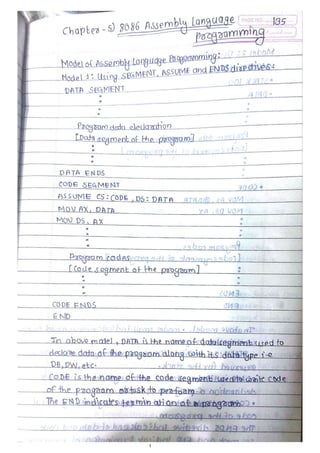 PAGE NO. 135
Chapter - 5) 8086 Assembly Language
Programming
Model of Assembly Language Programming:
Model 1: Using SEGMENT, ASSUME and ENDS directives:
DATA SEGMENT
:
:
Program data decleration
[Data segment of the program]
:
:
DATA ENDS
CODE SEGMENT
ASSUME CS:CODE, DS: DATA
MOV AX, DATA
MOV DS, AX
:
:
Program codes
[Code segment of the program]
:
:
CODE ENDS
END
In above model, DATA is the name of data segment used to
declare data of the program along with its data type i.e
DB, DW, etc.
CODE is the name of the code segment used to write code
of the program or task to preform
The END indicates termination of a program.